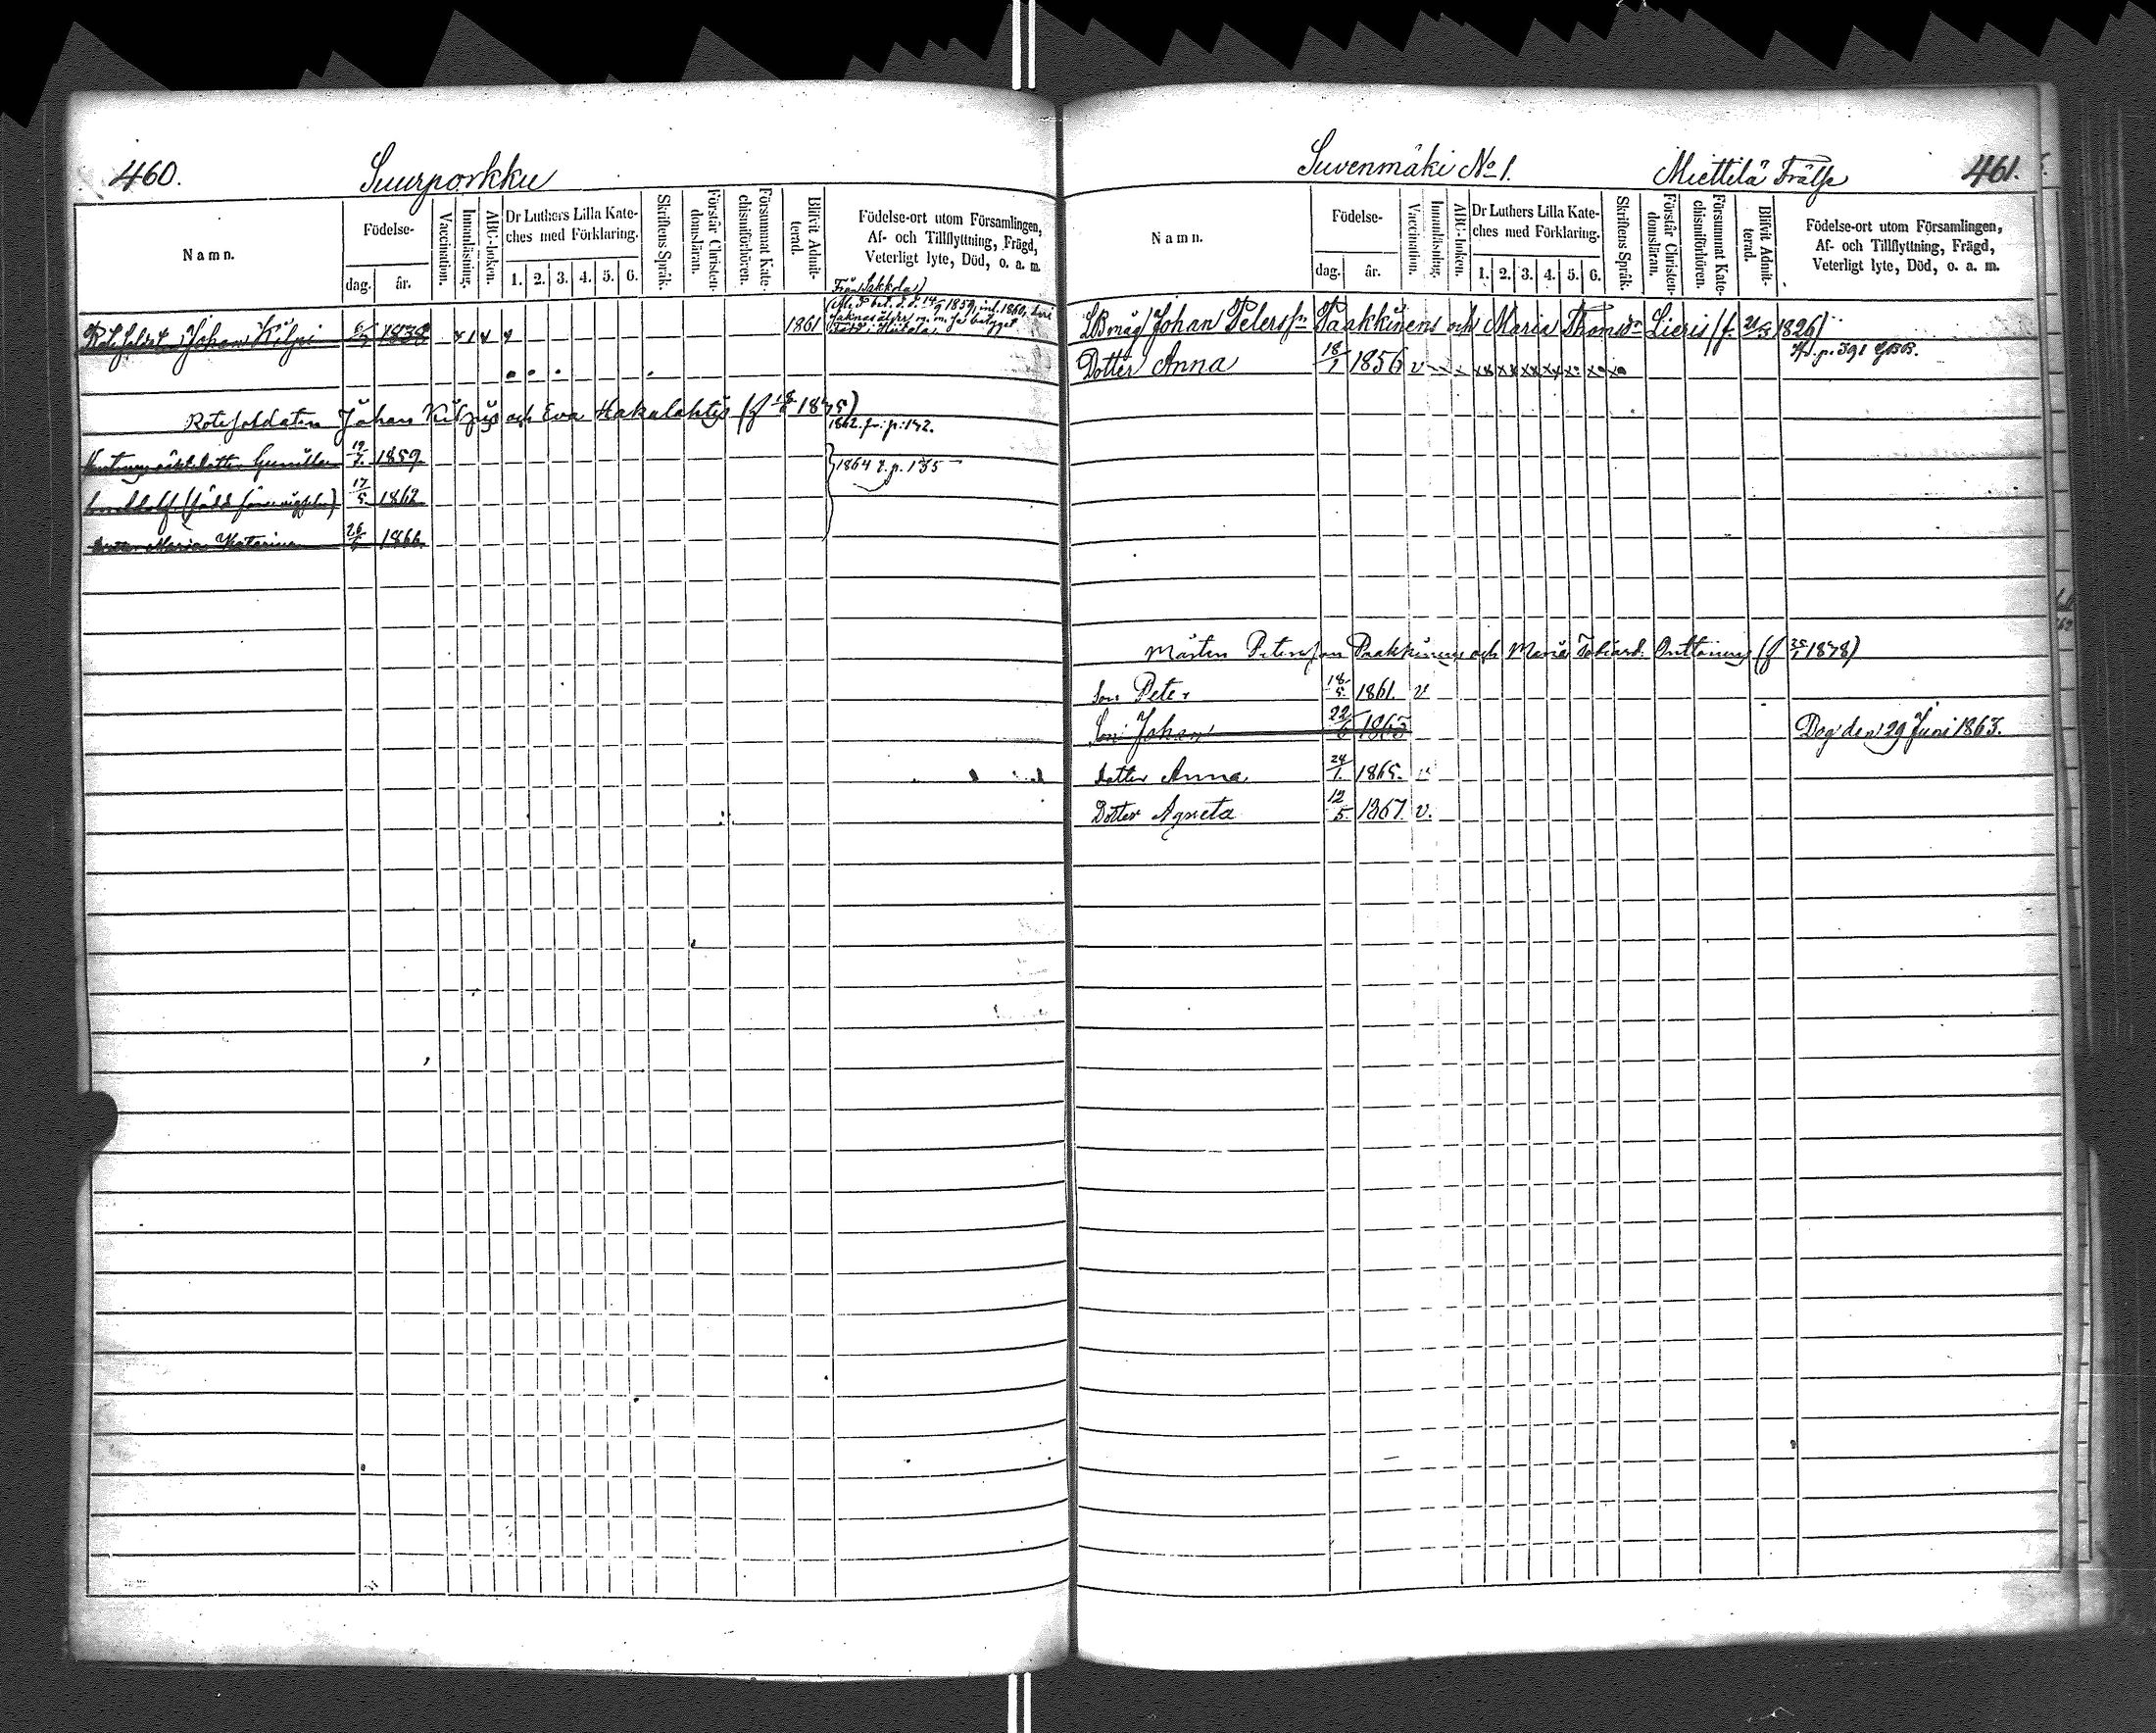 460.
Suurporkku
Namn.
Födelse-
dag.
år.
Vaccination.
Innanläsning.
ABC-boken.
Dr Luthers Lilla Kate-
ches med Förklaring.
1. 2. 3. 4. 5. 6.
Skriftens Språk.
Förstår Christen-
domsläran.
Försummat Kate-
chismiförhören.
Blifvit Admit-
terad.
Födelse-ort utom Församlingen,
Af- och Tillflyttning, Frägd,
Veterligt lyte, Död, o. a. m.
Från Sakkola
Johan Kilpi 1838 1861
Rotesoldaten Johan Kilpis och Eva Hakulahtis
1862. fr. p. 142.
dotter Gunilla 19/7. 1859
1864 t. p. 135
17/5 1862
Dotter Maria Katarina 26 1866
Suvenmäki No 1.
Miettilä Frälse
461.
Namn.
Födelse-
dag.
år.
Vaccination.
Innanläsning.
ABC-boken.
Dr Luthers Lilla Kate-
ches med Förklaring.
1. 2. 3. 4. 5. 6.
Skriftens Språk.
Förstår Christen-
domsläran.
Försummat Kate-
chismiförhören.
Blifvit Admit-
terad.
Födelse-ort utom Församlingen,
Af- och Tillflyttning, Frägd,
Veterligt lyte, Död, o. a. m.
Johan Petersn Paakkinens och Maria Thomsdr Lieris (f. 21/5 1826)
p. 391
Dotter Anna 18/1 1856 v
Mårten Petersson Paakkinens och Maria Onttonens
Son Peter 18/5 1861 v
Son Johan 22/6 1863 Dog den 29 Juni 1863.
dotter Anna 24/1. 1865. v
Dotter Agneta 12/5 1867 v.